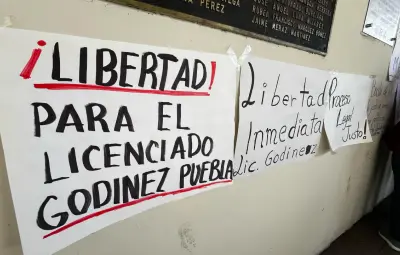 JAIME MERAZ MARTINEZ
¡LIBERTAD!
PARA EL
LICENCIADO
GODINEZ PUEBLA
Libertad
Inmediata
Lic. Godinez
Proceso
Legal
Justo!